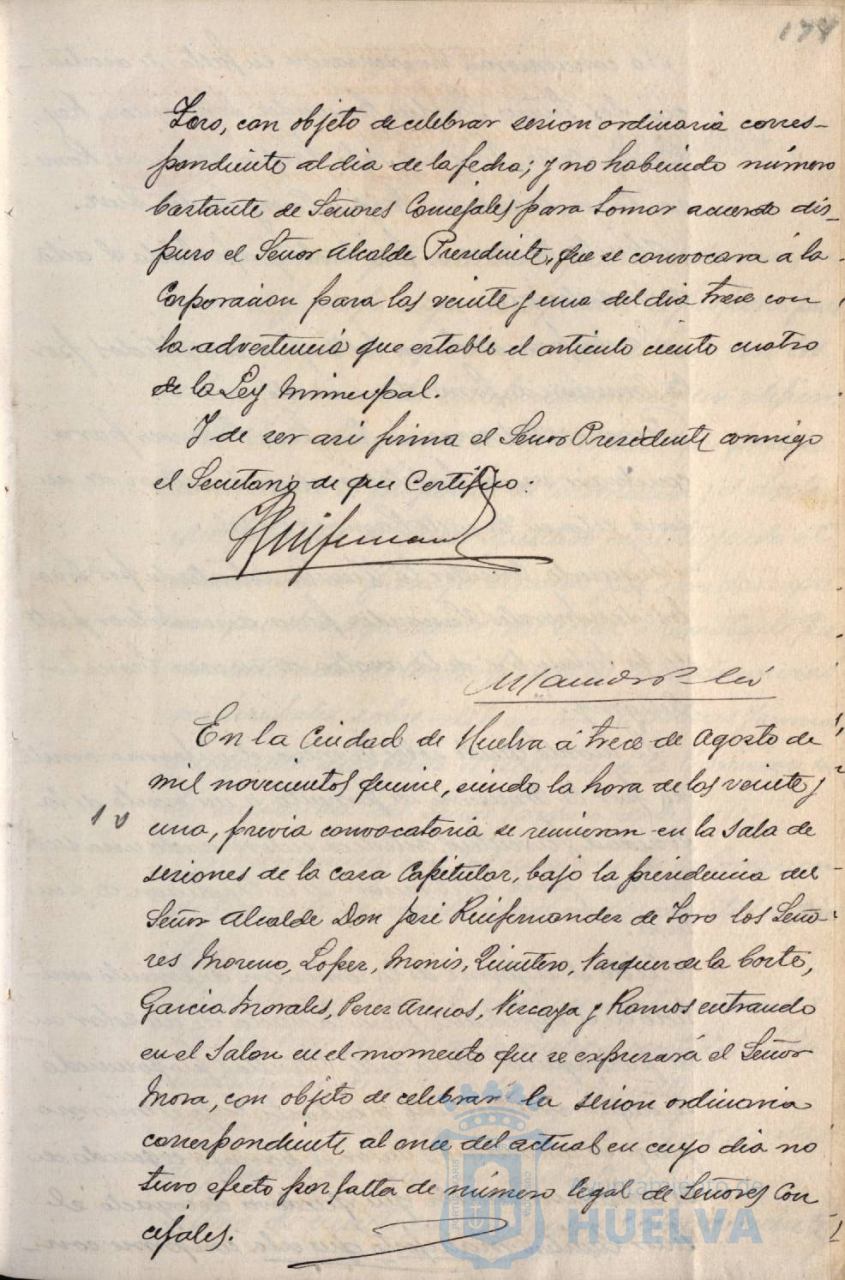 174
Toro, con objeto de celebrar sesion ordinaria corres-
pondiente al dia de la fecha; y no habiendo número
bastante de Señores Concejales para tomar acuerdo dis-
puso el Señor Alcalde Presidente, que se convocara á la
Corporacion para las veinte y una del dia trece con
la advertencia que estable el articulo ciento cuatro
de la Ley Municipal.
Y de ser asi firma el Señor Presidente conmigo
el Secretario de que Certifico:
En la Ciudad de Huelva á trece de Agosto de
mil novecientos quince, siendo la hora de las veinte y
una, previa convocatoria se reunieron en la sala de
sesiones de la casa Capitular, bajo la presidencia del
Señor Alcalde Don José Ruifernandez de Toro los Seño-
res Moreno, Lopez, Monis, Quintero, Vazquez de la Corte,
Garcia Morales, Perez Arenas, Vizcaya y Ramos entrando
en el Salon en el momento que se expresará el Señor
Mora, con objeto de celebrar la sesion ordinaria
correspondiente al once del actual en cuyo dia no
tuvo efecto por falta de número legal de Señores Con
cejales.
Ayuntamiento de
HUELVA